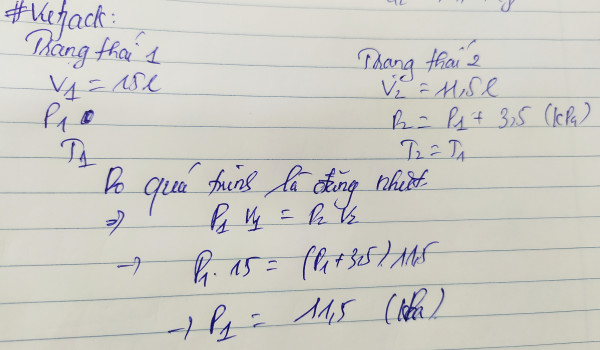 #Vietjack:
Trạng thái 1
V₁ = 15l
P₁
T₁
Trạng thái 2
V₂ = 11,5l
P₂ = P₁ + 3,5 (kPa)
T₂ = T₁
Do quá trình là đẳng nhiệt
⇒ P₁ V₁ = P₂ V₂
→ P₁. 15 = (P₁+3,5).11,5
→ P₁ = 11,5 (kPa)